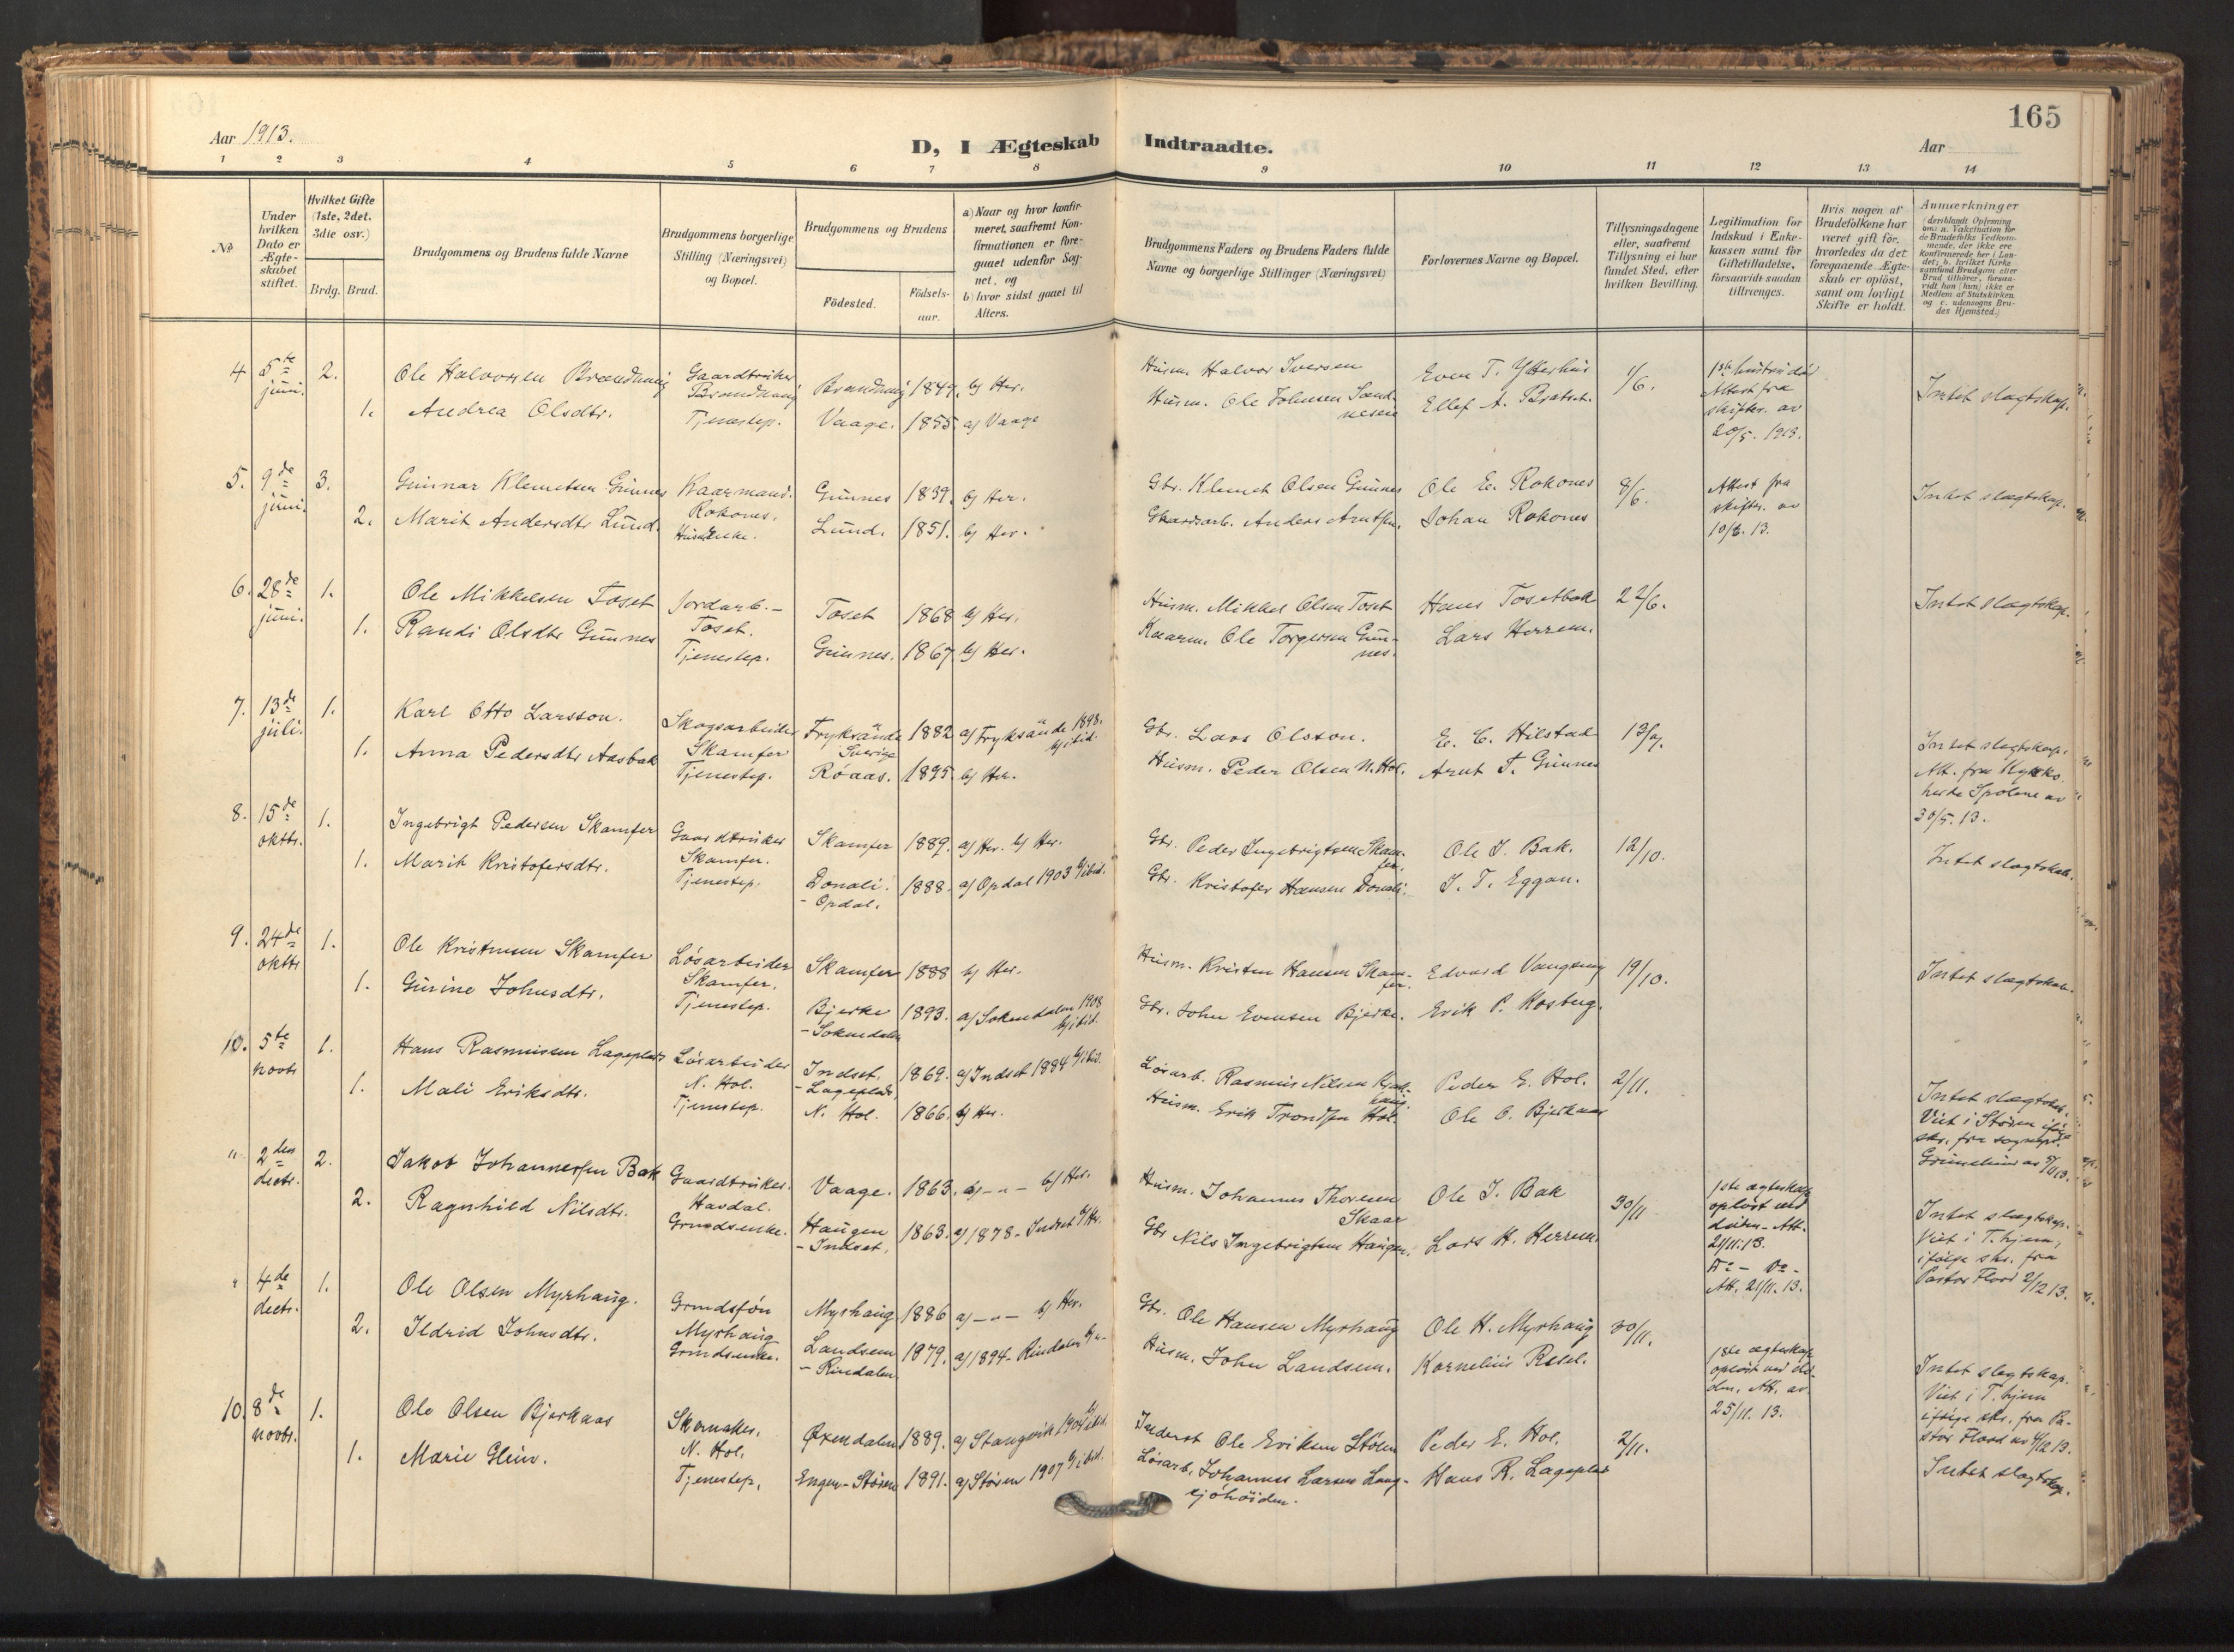 165
Aar 1913.
D, I Ægteskab Indtraadte.
Aar
1 2 3 4 5 6 7 8 9 10 11 12 13 14
No
Under hvilken Dato er Ægteskabet stiftet.
Hvilket Gifte (1ste, 2det, 3die osv.)
Brdg. Brud.
Brudgommens og Brudens fulde Navne
Brudgommens borgerlige Stilling (Næringsvei) og Bopæl.
Brudgommens og Brudens
Födested.
Födsels-aar.
a) Naar og hvor konfirmeret, saafremt Konfirmationen er foregaaet udenfor Sognet, og
b) hvor sidst gaaet til Alters.
Brudgommens Faders og Brudens Faders fulde Navne og borgerlige Stillinger (Næringsvei)
Forlovernes Navne og Bopæl.
Tillysningsdagene eller, saafremt Tillysning ei har fundet Sted, efter hvilken Bevilling.
Legitimation for Indskud i Enkekassen samt for Giftetilladelse, forsaavidt saadan tiltrænges.
Hvis nogen af Brudefolkene har været gift för, hvorledes da det foregaaende Ægteskab er oplöst, samt om lovligt Skifte er holdt.
Anmærkninger
4 5te juni. 2. Ole Halvorsen Brændhaug Gaardbruker Brandhaug Brandhaug 1849. b) Her. Husm. Halvor Iversen Even T. Ytterhus 1/6. Attest fra skifter. av 20/5. 1913. Intet slægtskap.
1. Andrea Olsdtr. Tjenestep. Vaage. 1855 a) Vaage Husm. Ole Johnsen Sandnesen Ellef A. Bratset.
5. 9de juni. 3. Gunnar Klemetsen Gunnes Kaarmand. Rokones. Gunnes 1839. b) Her. Gbr. Klemet Olsen Gunnes Ole E. Rokones 8/6. Attest fra skifter. av 10/6. 13. Intet slægtskap.
2. Marit Andersdtr Lund. Lund. 1851. b) Her. Anders Arntsen. Johan Rokones
6. 28de juni. 1. Ole Mikkelsen Toset Jordarb. - Toset. Toset 1868 b) Her. Husm. Mikkel Olsen Toset Hans Tosetbak 22/6. Intet slægtskap.
1. Randi Olsdtr Gunnes Tjenestep. Gunnes. 1867. b) Her. Kaarm. Ole Torgersen Gunnes. Lars Herrem.
7. 13de juli. 1. Karl Otto Larsson. Skogsarbeider Skamfer Fryksände Sverige 1882 a) Fryksände 1898. b) ibid. Gbr. Lars Olsson. E. C. Hilstad 13/7. Intet slægtskap.
1. Anna Pedersdtr Aasbak Tjenestep. Röaas. 1895. b) Her. Husm. Peder Olsen N. Hol. Arnt T. Gunnes 30/5. 13.
8. 15de oktbr. 1. Ingebrigt Pedersen Skamfer Gaardbruker Skamfer. Skamfer 1889. a) Her. b) Her. Gbr. Peder Ingebrigtsen Skamfer. Ole J. Bak. 12/10. Intet slægtskab.
1. Marit Kristofersdtr. Tjenestep. Donali. - Opdal. 1888. a) Opdal 1903 b) ibid. Gbr. Kristofer Hansen Donali. J. T. Eggan.
9. 24de oktbr 1. Ole Kristensen Skamfer Løsarbeider Skamfer. Skamfer 1888 b) Her. Husm. Kristen Hansen Skamfer. Edvard Vangseng 19/10. Intet slægtskab.
1. Gurine Johnsdtr. Tjenestep. Bjerke - Soknedalen 1893. a) Soknedalen 1908 b) ibid. Gbr. John Evensen Bjerke. Erik P. Kosberg.
10. 5te novbr 1. Hans Rasmussen Lageplads Løsarbeider N. Hol. Indset. - Lageplads. 1869. a) Indset 1884 b) ibid. Løsarb. Rasmus Nilsen Peder E. Hol. 2/11. Intet slægtskab.
1. Mali Eriksdtr. Tjenestep. N. Hol. 1866. b) Her. Husm. Erik Trondsen Hol. Ole O. Bjerkaas Viet i Støren
" 2den decbr. 2. Jakob Johannessen Bak Gaardbruker. Havdal. Vaage. 1863. a) - " - b) Her. Husm. Johannes Thoresen Skaar Ole J. Bak 30/11 1ste ægteskap opløst ved døden - Att. 21/11. 13. Intet slægtskap.
2. Ragnhild Nilsdtr. Grundsenke. Haugen - Indset. 1863. a) 1878 - Indset b) Her. Gbr Nils Ingebrigtsen Haugen. Lars H. Herrem. Do - Do - Att. 21/11. 13. Viet i T.hjem, ifølge skr. fra Pastor Flood 2/12 13.
" 4de decbr. 1. Ole Olsen Myrhaug. Grundsfør Myrhaug Myrhaug 1886 a) - " - b) Her. Gbr. Ole Hansen Myrhaug Ole H. Myrhaug 30/11. 1ste ægteskap opløst ved døden. Att. av 25/11. 13. Intet slægtskap.
2. Ildrid Johnsdtr. Grundsenke. Landsem - Rindalen 1879. a) 1894 - Rindalen Husm. John Landsem. Kornelius Resel. Viet i T.hjem ifølge skr. fra Pastor Flood av 4/12 13.
10. 8de novbr. 1. Ole Olsen Bjerkaas Skomaker. N. Hol. Øxendalen 1889. a) Stangvik 1904 b) ibid. Inderst Ole Eriksen Stølen Peder E. Hol. 2/11. Intet slægtskap.
1. Marie Glein. Tjenestep. Engen - Støren 1891. a) Støren 1907 b) ibid. Løsarb. Johannes Larsen Langsjöhöiden. Hans R. Lageplads